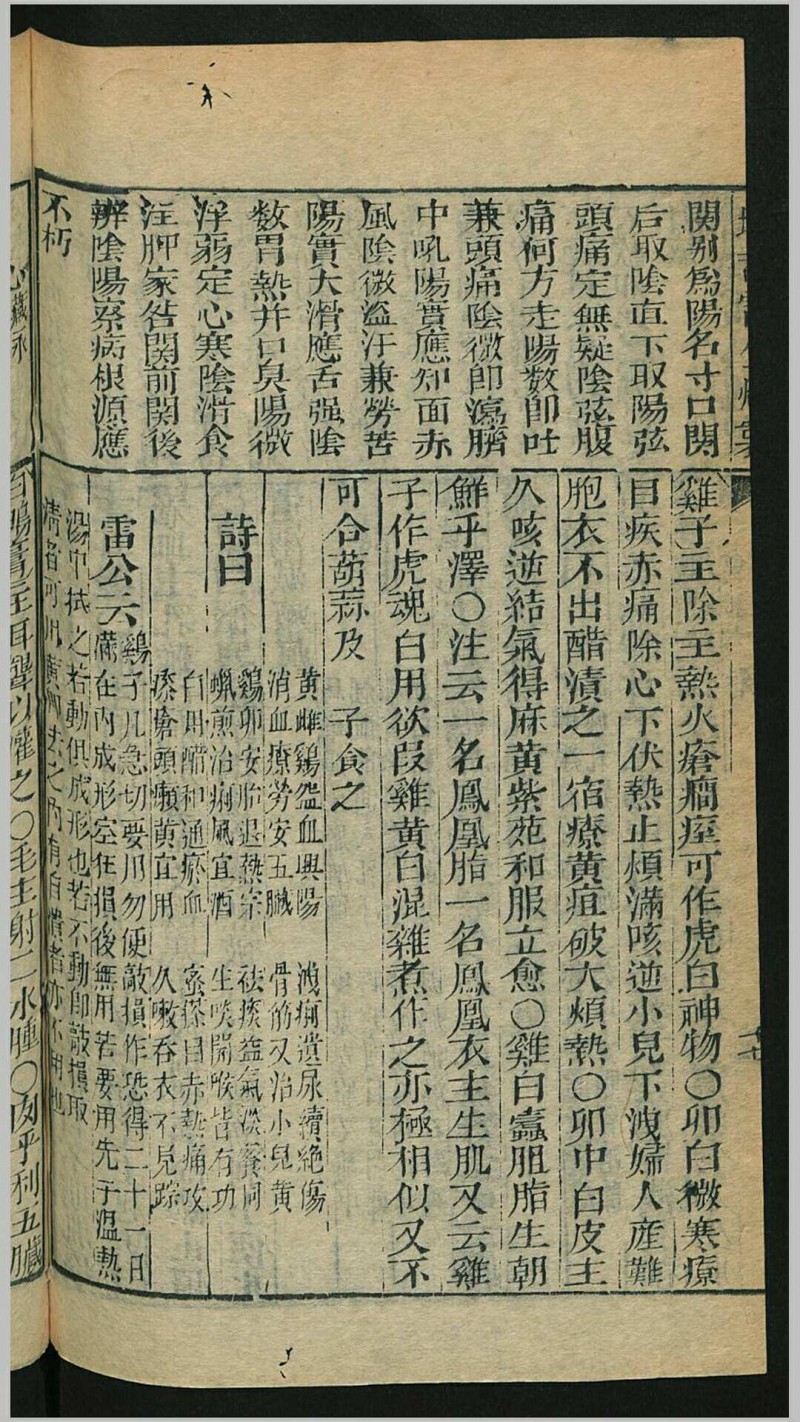 関别為陽名寸口関
后取陰直下取陽弦
頭痛定無疑陰弦腹
痛何方走陽数即吐
兼頭痛陰微即瀉臍
中吼陽實應知面赤
風陰微盗汗兼勞苦
陽實大滑應舌强陰
数胃熱并口臭陽微
浮弱定心寒陰滑食
注脾家咎関前関後
辨陰陽察病根源應
不朽
雞子主除主熱火瘡癎痓可作虎白神物○卯白微寒療
目疾赤痛除心下伏熱止煩滿咳逆小兒下洩婦人産難
胞衣不出醋漬之一宿療黄疸破大煩熱○卯中白皮主
久咳逆結氣得麻黄紫苑和服立愈○雞白蠹胆脂生朝
鮮乎澤○注云一名鳳凰脂一名鳳凰衣主生肌又云雞
子作虎魂白用欲叚雞黄白混雜煮作之亦極相似又不
可合葫蒜及 子食之
詩曰
黄雌鷄 血興陽 洩痢遺尿續絶傷
消血療勞安五臓 骨筋又治小兒黄
鷄卯安胎退熱宗 袪痰益氣淡養同
蝋煎治痢風宜酒 生啖開喉皆有功
白則醋和通瘀血 蜜搽目赤熱痛攻
痿瘡頭癩黄宜用 久嗽吞衣不見踪
雷公云
鷄子凡急切要用勿便敲損作恐得二十一日
藏在内成形空在損後無用若要用先于温熱
湯中拭之若動俱成形也若不動即敲損取
清者可用黄